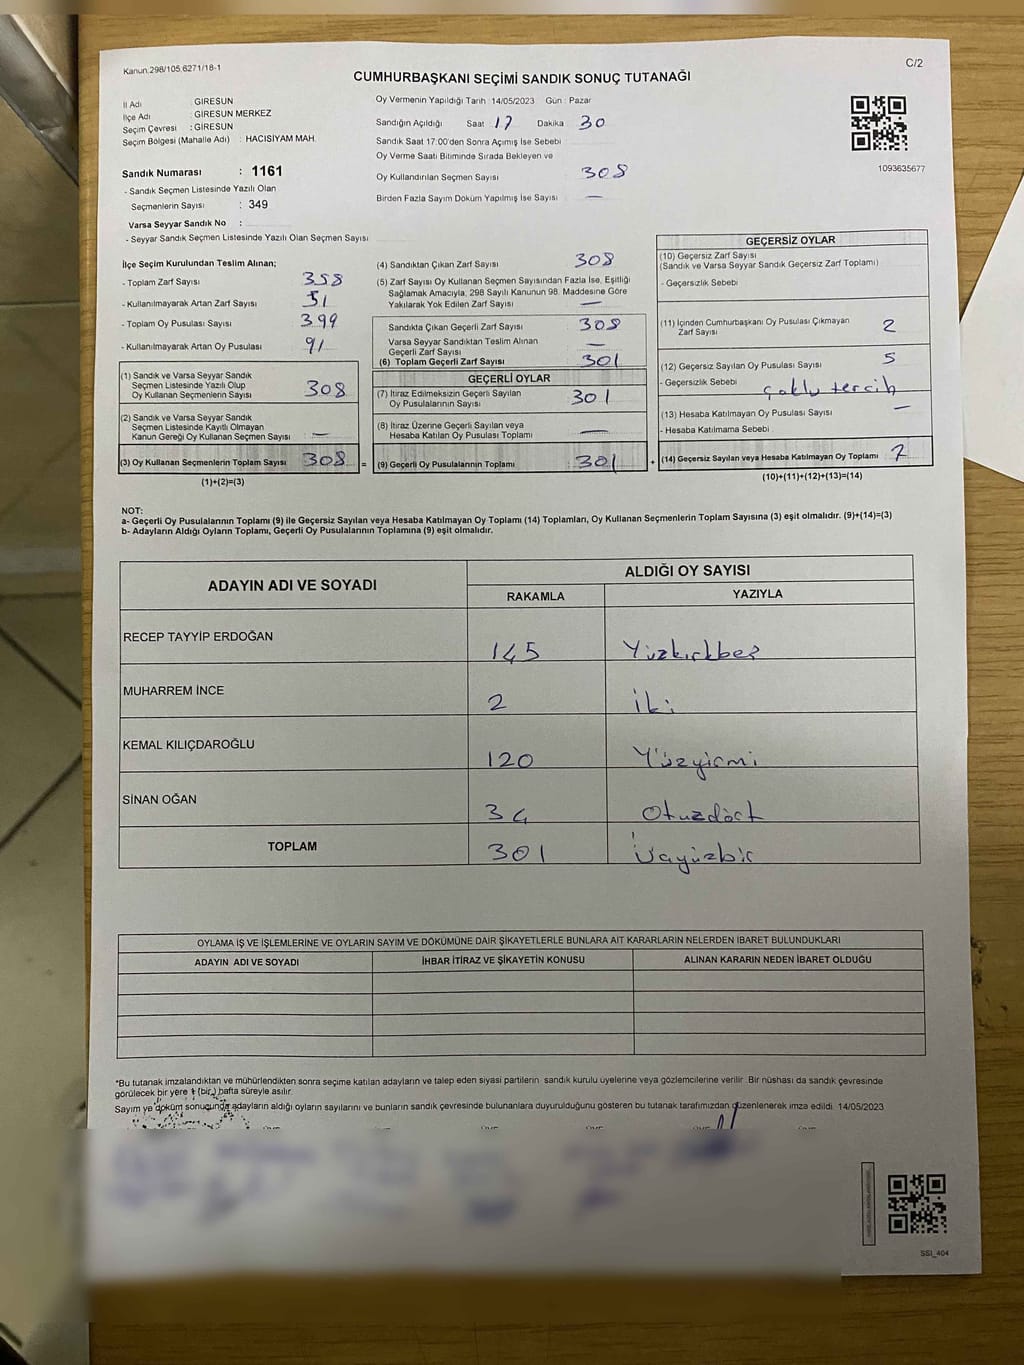 Kanun.298/105.6271/18-1
C/2
CUMHURBAŞKANI SEÇİMİ SANDIK SONUÇ TUTANAĞI
İl Adı GİRESUN
İlçe Adı GİRESUN MERKEZ
Seçim Çevresi : GİRESUN
Seçim Bölgesi (Mahalle Adı) : HACISİYAM MAH.
Sandık Numarası : 1161
- Sandık Seçmen Listesinde Yazılı Olan
Seçmenlerin Sayısı : 349
Varsa Seyyar Sandık No :
- Seyyar Sandık Seçmen Listesinde Yazılı Olan Seçmen Sayısı
Oy Vermenin Yapıldığı Tarih : 14/05/2023 Gün : Pazar
Sandığın Açıldığı Saat 17 Dakika 30
Sandık Saat 17:00'den Sonra Açımış İse Sebebi
Oy Verme Saati Bitiminde Sırada Bekleyen ve
Oy Kullandırılan Seçmen Sayısı 308
Birden Fazla Sayım Döküm Yapılmış İse Sayısı —
1093635677
İlçe Seçim Kurulundan Teslim Alınan;
- Toplam Zarf Sayısı 358
- Kullanılmayarak Artan Zarf Sayısı 51
- Toplam Oy Pusulası Sayısı 399
- Kullanılmayarak Artan Oy Pusulası 91
(1) Sandık ve Varsa Seyyar Sandık
Seçmen Listesinde Yazılı Olup
Oy Kullanan Seçmenlerin Sayısı 308
(2) Sandık ve Varsa Seyyar Sandık
Seçmen Listesinde Kayıtlı Olmayan
Kanun Gereği Oy Kullanan Seçmen Sayısı —
(3) Oy Kullanan Seçmenlerin Toplam Sayısı 308 =
(1)+(2)=(3)
(4) Sandıktan Çıkan Zarf Sayısı 308
(5) Zarf Sayısı Oy Kullanan Seçmen Sayısından Fazla İse, Eşitliği
Sağlamak Amacıyla, 298 Sayılı Kanunun 98. Maddesine Göre
Yakılarak Yok Edilen Zarf Sayısı —
Sandıkta Çıkan Geçerli Zarf Sayısı 308
Varsa Seyyar Sandıktan Teslim Alınan
Geçerli Zarf Sayısı —
(6) Toplam Geçerli Zarf Sayısı 301
GEÇERLİ OYLAR
(7) İtiraz Edilmeksizin Geçerli Sayılan
Oy Pusulalarının Sayısı 301
(8) İtiraz Üzerine Geçerli Sayılan veya
Hesaba Katılan Oy Pusulası Toplamı —
(9) Geçerli Oy Pusulalarının Toplamı 301 +
GEÇERSİZ OYLAR
(10) Geçersiz Zarf Sayısı
(Sandık ve Varsa Seyyar Sandık Geçersiz Zarf Toplamı)
- Geçersizlik Sebebi
(11) İçinden Cumhurbaşkanı Oy Pusulası Çıkmayan
Zarf Sayısı 2
(12) Geçersiz Sayılan Oy Pusulası Sayısı 5
- Geçersizlik Sebebi çoklu tercih
(13) Hesaba Katılmayan Oy Pusulası Sayısı —
- Hesaba Katılmama Sebebi
(14) Geçersiz Sayılan veya Hesaba Katılmayan Oy Toplamı 7
(10)+(11)+(12)+(13)=(14)
NOT:
a- Geçerli Oy Pusulalarının Toplamı (9) ile Geçersiz Sayılan veya Hesaba Katılmayan Oy Toplamı (14) Toplamları, Oy Kullanan Seçmenlerin Toplam Sayısına (3) eşit olmalıdır. (9)+(14)=(3)
b- Adayların Aldığı Oyların Toplamı, Geçerli Oy Pusulalarının Toplamına (9) eşit olmalıdır.
ADAYIN ADI VE SOYADI ALDIĞI OY SAYISI
RAKAMLA YAZIYLA
RECEP TAYYİP ERDOĞAN 145 Yüzkırkbeş
MUHARREM İNCE 2 İki
KEMAL KILIÇDAROĞLU 120 Yüzyirmi
SİNAN OĞAN 34 Otuzdört
TOPLAM 301 Üçyüzbir
OYLAMA İŞ VE İŞLEMLERİNE VE OYLARIN SAYIM VE DÖKÜMÜNE DAİR ŞİKAYETLERLE BUNLARA AİT KARARLARIN NELERDEN İBARET BULUNDUKLARI
ADAYIN ADI VE SOYADI İHBAR İTİRAZ VE ŞİKAYETİN KONUSU ALINAN KARARIN NEDEN İBARET OLDUĞU
*Bu tutanak imzalandıktan ve mühürlendikten sonra seçime katılan adayların ve talep eden siyasi partilerin sandık kurulu üyelerine veya gözlemcilerine verilir. Bir nüshası da sandık çevresinde
görülecek bir yere 1 (bir) hafta süreyle asılır.
Sayım ve döküm sonucunda adayların aldığı oyların sayılarını ve bunların sandık çevresinde bulunanlara duyurulduğunu gösteren bu tutanak tarafımızdan düzenlenerek imza edildi. 14/05/2023
SSI_404